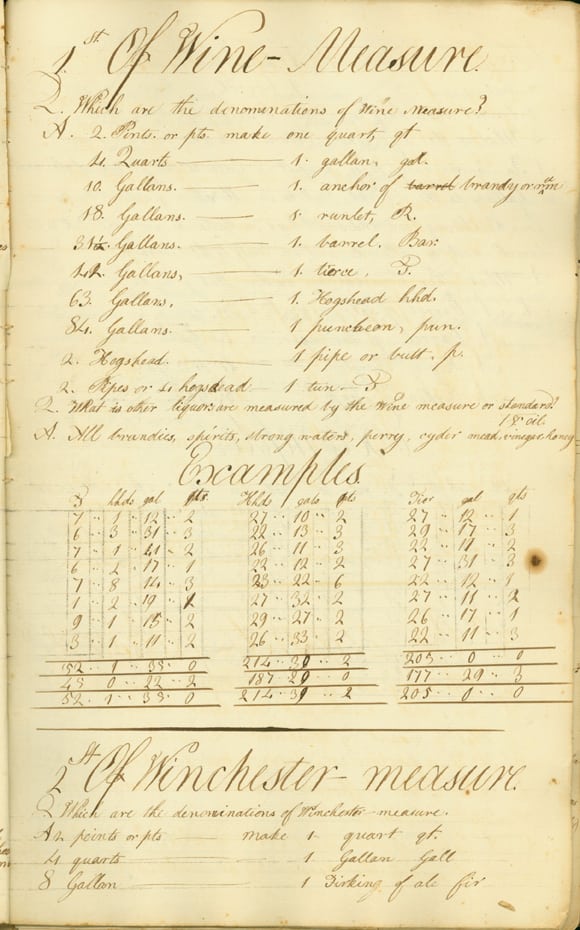 1.st Of Wine-Measure.
Q. Which are the denominations of Wine Measure?
A. 2. Pints. or pts. make one quart, qt
4. Quarts 1. gallan, gal.
10. Gallans. 1. anchor of barrel brandy or rum
18. Gallans. 1 runlet, R.
31½ Gallans. 1. barrel. Bar.
42. Gallans, 1. tierce, T.
63. Gallans, 1. Hogshead hhd.
84. Gallans. 1 puncheon, pun.
2. Hogshead. 1 pipe or butt. p.
2. Pipes or 4 hogsdead 1 tun T
Q. What is other liquors are measured by the wine measure or standard?
A. All brandies, spirits, strong waters, perry, cyder mead, vinegar honey & oil.
Examples.
T hhds gal qts Hhds gals qts Tier gal qts
7 1 12 2 27 10 2 27 12 1
6 3 31 3 22 13 3 29 17 3
7 1 41 2 26 11 3 22 11 2
6 2 17 1 22 12 2 27 31 3
7 8 14 3 23 22 6 22 12 1
1 2 19 1 27 32 2 27 11 2
9 1 18 2 29 27 2 26 17 1
3 1 11 2 26 33 2 22 11 3
52 1 33 0 214 39 2 205 0 0
45 0 22 2 187 29 0 177 29 3
52 1 33 0 214 39 2 205 0 0
2.st Of Winchester measure.
Q Which are the denominations of Winchester-measure.
A 2 peints or pts make 1 quart qt.
4 quarts 1 Gallan Gall
8 Gallan 1 Firking of ale fir